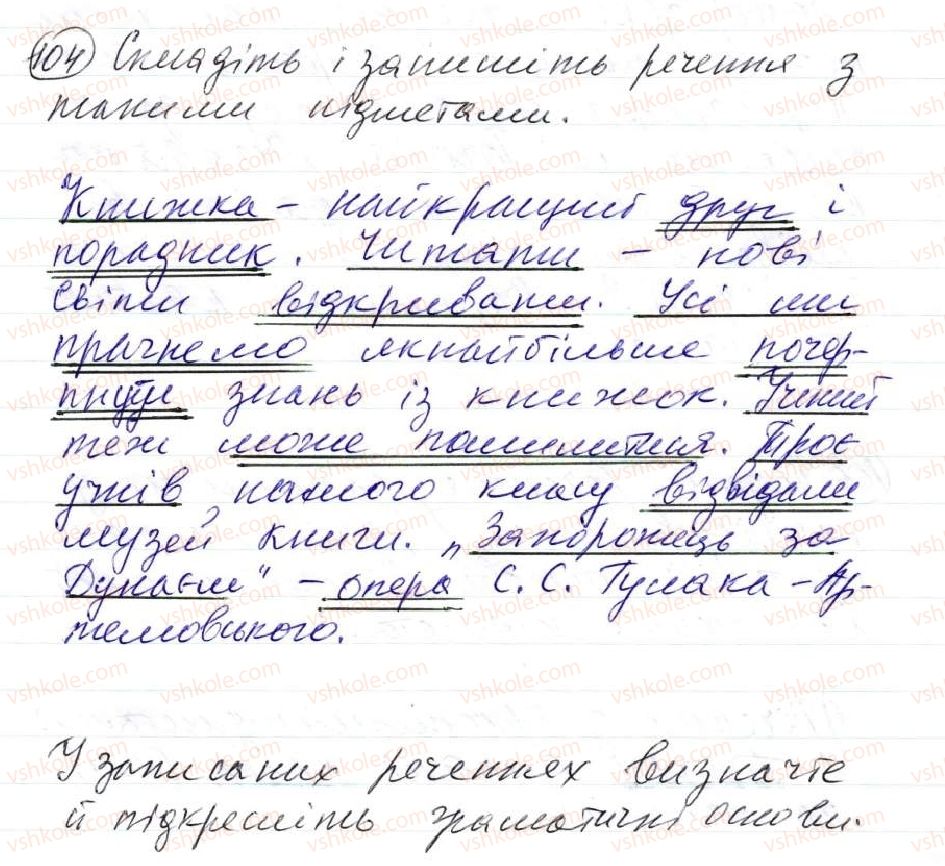 104 Складіть і запишіть речення з
такими підметами.
Книжка – найкращий друг і
порадник. Читати – нові
світи відкривати. Усі ми
прагнемо якнайбільше почер-
пнути знань із книжок. Учений
теж може помилитися. Троє
учнів нашого класу відвідали
музей книги. „Запорожець за
Дунаєм" – опера С. С. Гулака-Ар-
темовського.
У записаних реченнях визначте
й підкресліть граматичні основи.